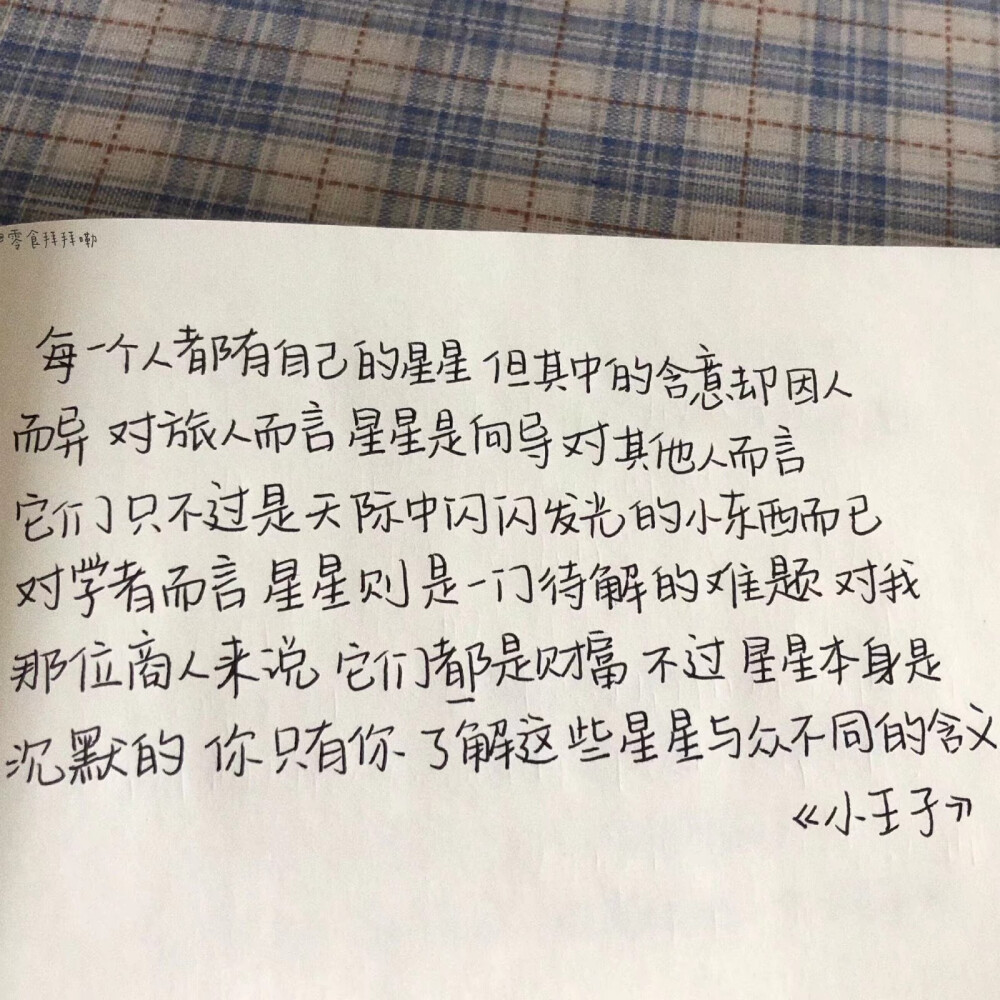 #零食拜拜嘞
每一个人都有自己的星星 但其中的含意却因人
而异 对旅人而言 星星是向导 对其他人而言
它们只不过是天际中闪闪发光的小东西而已
对学者而言 星星则是一门待解的难题 对我
那位商人来说 它们都是财富 不过 星星本身是
沉默的 你 只有你 了解这些星星与众不同的含义
《小王子》